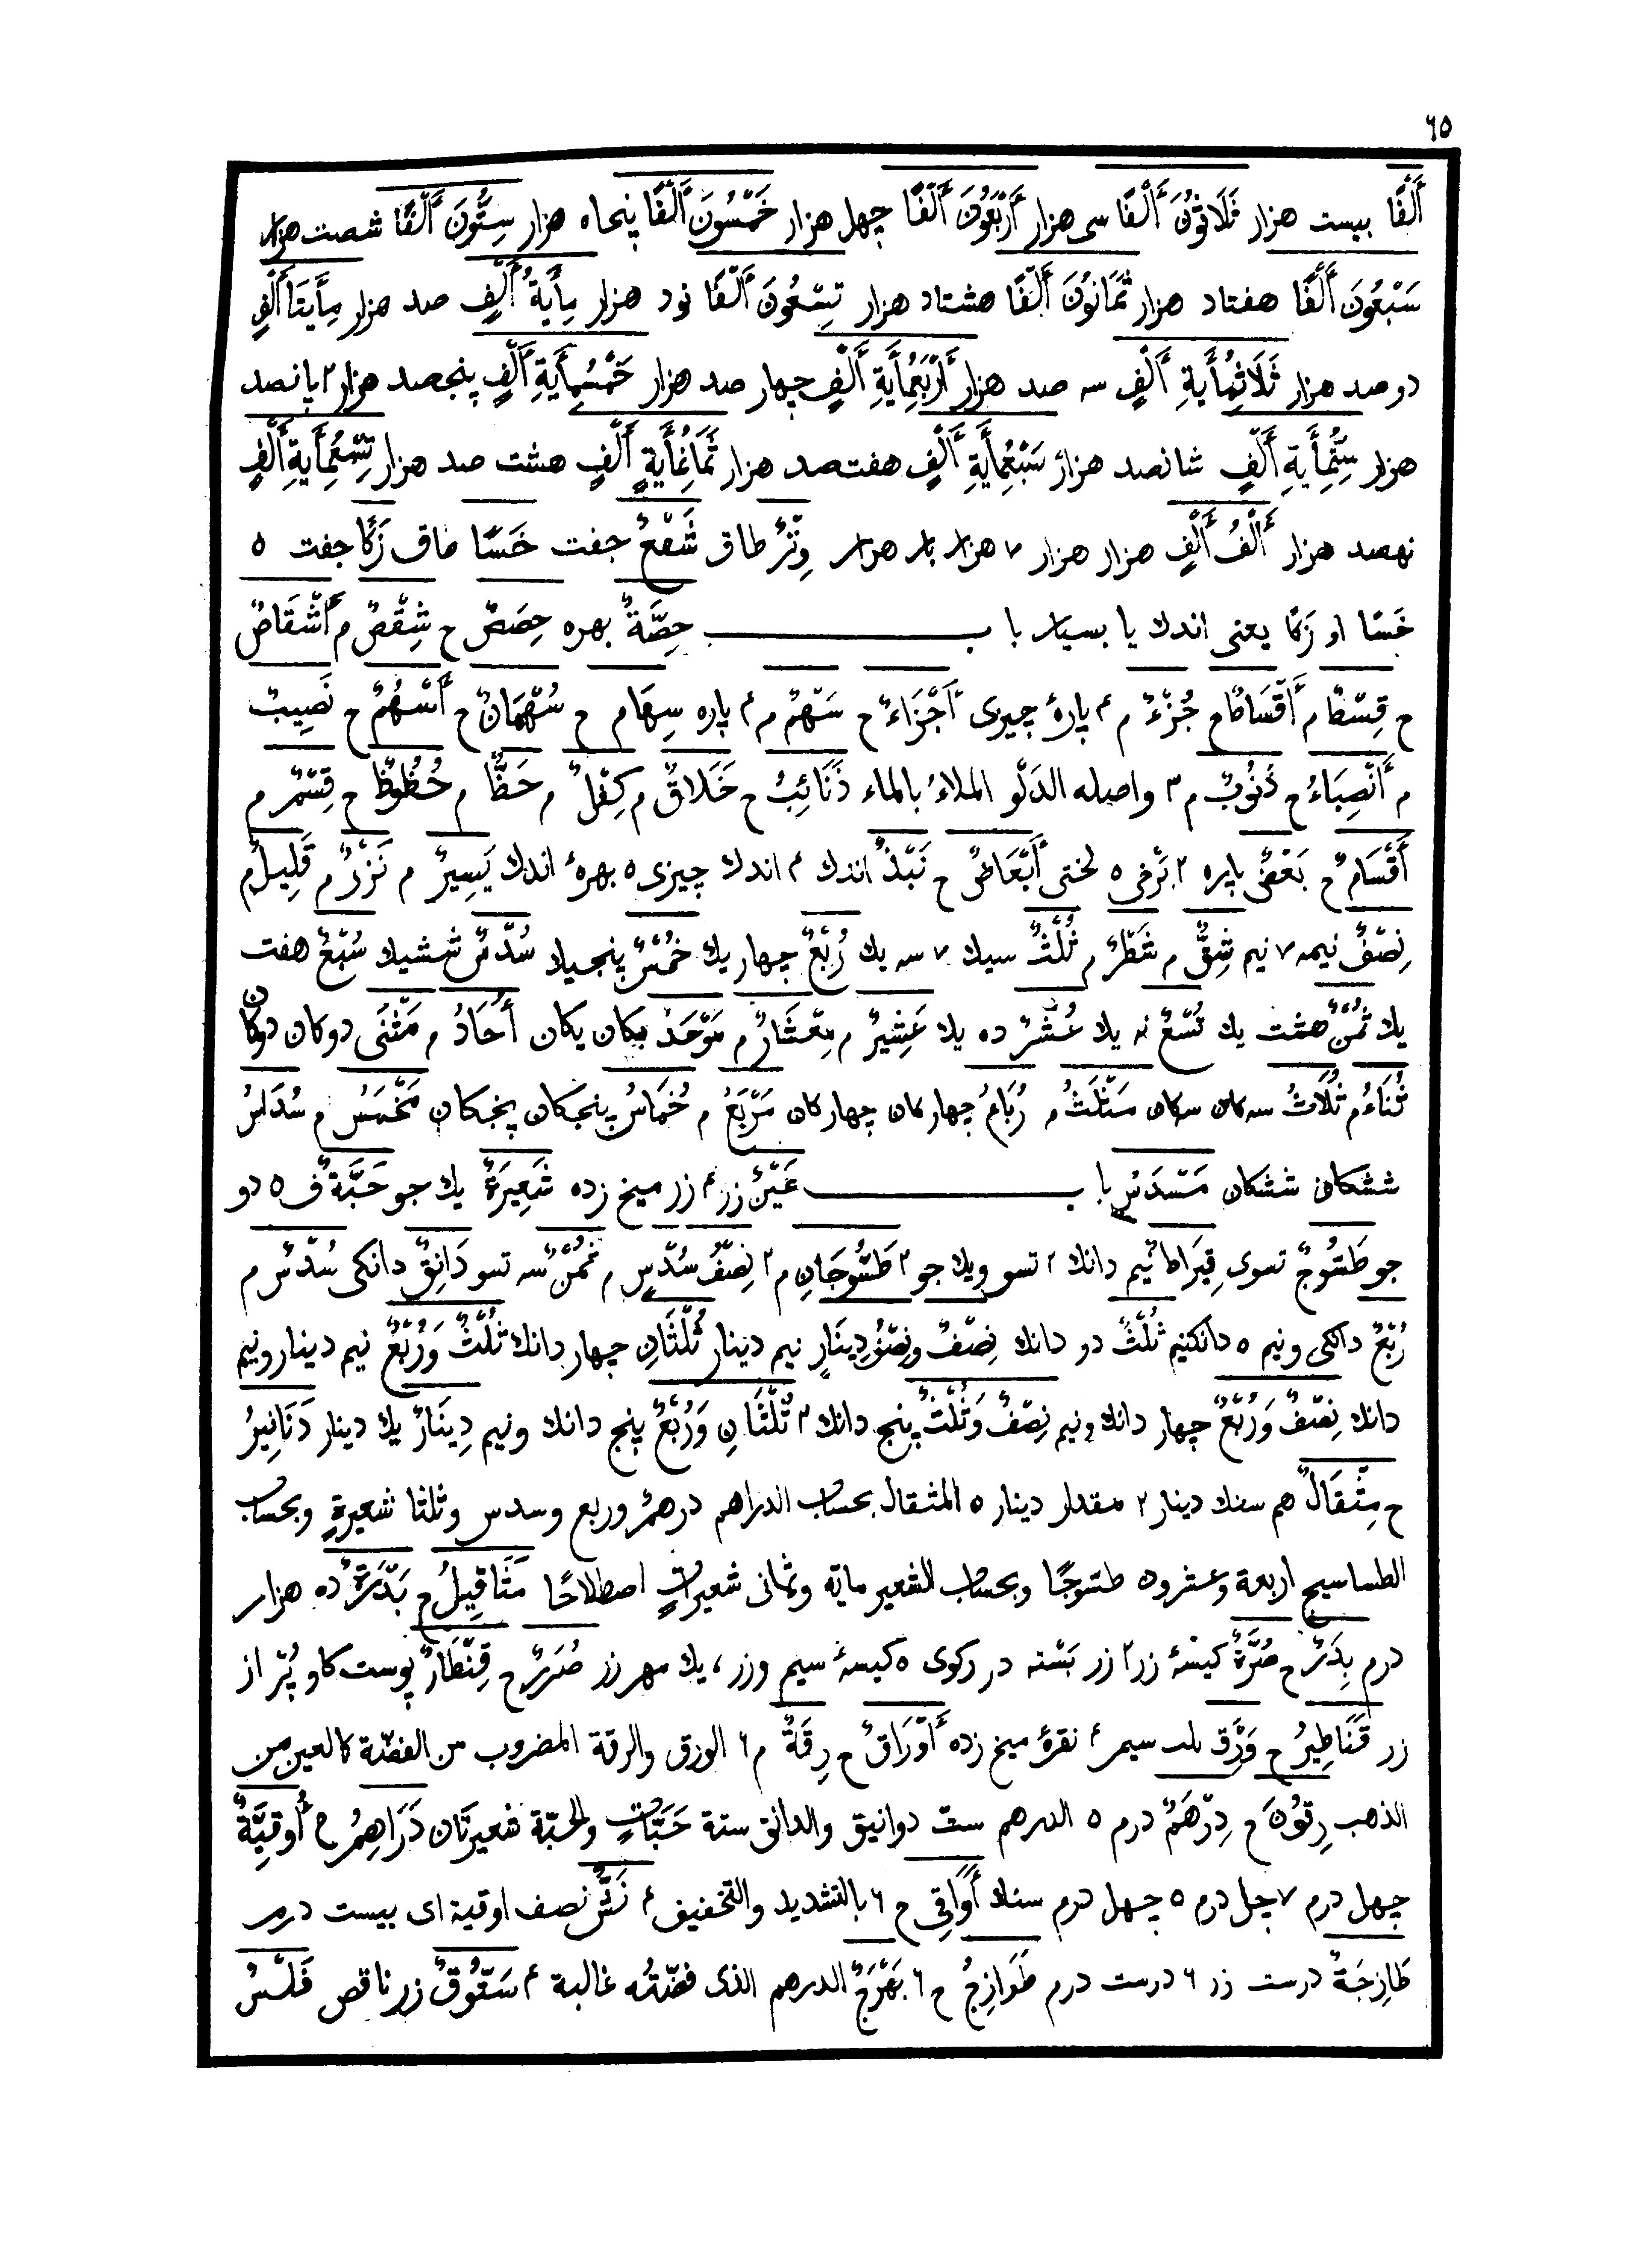 ٦٥
أَلْفًا بيست هزار ثَلَاثُونَ أَلْفًا سى هزار أَرْبَعُونَ أَلْفًا چهل هزار خَمْسُونَ أَلْفًا پنجاه هزار سِتُّونَ أَلْفًا شصت هزار
سَبْعُونَ أَلْفًا هفتاد هزار ثَمَانُونَ أَلْفًا هشتاد هزار تِسْعُونَ أَلْفًا نود هزار مِأَيَةُ أَلْفٍ صد هزار مِأَيَتَا أَلْفٍ
دو صد هزار ثَلَاثُمِأَيَةِ أَلْفٍ سه صد هزار أَرْبَعُمِأَيَةِ أَلْفٍ چهار صد هزار خَمْسُمِأَيَةِ أَلْفٍ پنجصد هزار ٢ پانصد
هزار سِتُّمِأَيَةِ أَلْفٍ شانصد هزار سَبْعُمِأَيَةِ أَلْفٍ هفتصد هزار ثَمَانُمِأَيَةِ أَلْفٍ هشت صد هزار تِسْعُمِأَيَةِ أَلْفٍ
نهصد هزار أَلْفُ أَلْفٍ هزار هزار ٧ هزار بار هزار وِتْرٌ طاق شَفْعٌ جفت خَسًا طاق زَكًا جفت ٥
خَسًا او زَكًا يعنى اندك يا بسيار با ب حِصَّةٌ بهره حِصَصٌ ح شِقْصٌ م أَشْقَاصٌ
ح قِسْطٌ م أَقْسَاطٌ ح جُزْءٌ م ٤ پارۀ چيزى أَجْزَاءٌ ح سَهْمٌ م ٤ پاره سِهَام ح سُهْمَانٌ ح أَسْهُمٌ ح نَصِيبٌ
م أَنْصِبَاءُ ح ذَنُوبٌ م ٣ واصله الدَلْو الملاءُ بالماء ذَنَائِبُ ح خَلَاقٌ م كِفْلٌ م حَظٌّ م حُظُوظٌ ح قِسْمٌ م
أَقْسَامٌ ح بَعْضٌ پاره ٢ برخى ٥ لختى أَبْعَاضٌ ح نَبْذٌ اندك ٤ اندك چيزى ٥ بهرۀ اندك يَسِيرٌ م نَزْرٌ م قَلِيلٌ م
نِصْفٌ نيمه ٧ نيم شِقٌّ م شَطْرٌ م ثُلْثٌ سيك ٧ سه يك رُبْعٌ چهار يك خُمْسٌ پنجيك سُدْسٌ ششيك سُبْعٌ هفت
يك ثُمْنٌ هشت يك تُسْعٌ نه يك عُشْرٌ ده يك عَشِيرٌ م مِعْشَارٌ م مَوْحَدَ يكان يكان أُحَادُ م مَثْنَى دوكان دوكان
ثُنَاءُ م ثُلَاثُ سه كان سه كان مَثْلَثُ م رُبَاعُ چهاركان چهاركان مَرْبَعُ م خُمَاسُ پنجكان پنجكان مَخْمَسُ م سُدَاسُ
ششكان ششكان مَسْدَسُ با ب عَيْنٌ زر ٤ زر ميخ زده شَعِيرَةٌ يك جو حَبَّةٌ ف ٥ دو
جو طَسُّوجٌ تسوى قِيرَاطٌ نيم دانك ٢ تسو ويك جو ٢ طَسُّوجَانِ م ٢ نِصْفُ سُدْسٍ م ثُمْنٌ سه تسو دَانِقٌ دانكى سُدْسٌ م
رُبْعٌ دانكى ونيم ٥ دانكنيم ثُلْثٌ دو دانك نِصْفٌ ونِصْفُ دِينَارٍ نيم دينار ثُلْثَانِ چهار دانك ثُلْثٌ وَرُبْعٌ نيم دينار ونيم
دانك نِصْفٌ وَرُبْعٌ چهار دانك ونيم نِصْفٌ وَثُلْثٌ پنج دانك ٣ ثُلْثَانِ وَرُبْعٌ پنج دانك ونيم دِينَارٌ يك دينار دَنَانِيرُ
ح مِثْقَالٌ هم سنك دينار ٢ مقدار دينار ٥ المثقال بحساب الدراهم درهمٌ وربع وسدس وثلثا شعيرةٍ وبحساب
الطساسيج اربعة وعشرون طسّوجًا وبحساب الشعير ماية وثمانى شعيراتٍ اصطلاحًا مَثَاقِيلُ ح بَدْرَةٌ ده هزار
درم بِدَرٌ ح صُرَّةٌ كيسۀ زر ٢ زر بسته در ركوى ٥ كيسۀ سيم وزر ، يك مهر زر صُرَرٌ ح قِنْطَارٌ پوست كاو پُر از
زر قَنَاطِيرُ ح وَرْق سيم ٤ نقرۀ ميخ زده أَوْرَاقٌ ح رِقَةٌ م ٦ الورق والرقة المضروب من الفضّة كالعين من
الذهب رِقُونَ ح دِرْهَمٌ درم ٥ الدرهم ستّ دوانيق والدانق ستة حَبَّاتٍ والحبّة شعيرتان دَرَاهِمُ ح أُوقِيَّةٌ
چهل درم ٧ چل درم ٥ چهل درم سنك أَوَاقِي ح ٦ بالتشديد والتخفيف ٤ نَشٌّ نصف اوقية اى بيست درم
طَازِجَةٌ درست زر ٦ درست درم طَوَازِجُ ح ٦ بَهْرَجٌ الدرهم الذى فضّته غالبة ٤ سَتُّوقٌ زر ناقص فَلْسٌ